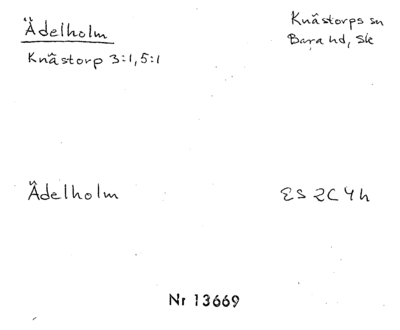 Ädelholm
Knästorps sn
Knästorp 3:1, 5:1
Bara hd, Sk
Ädelholm
ES 2C 4h
Nr 13669